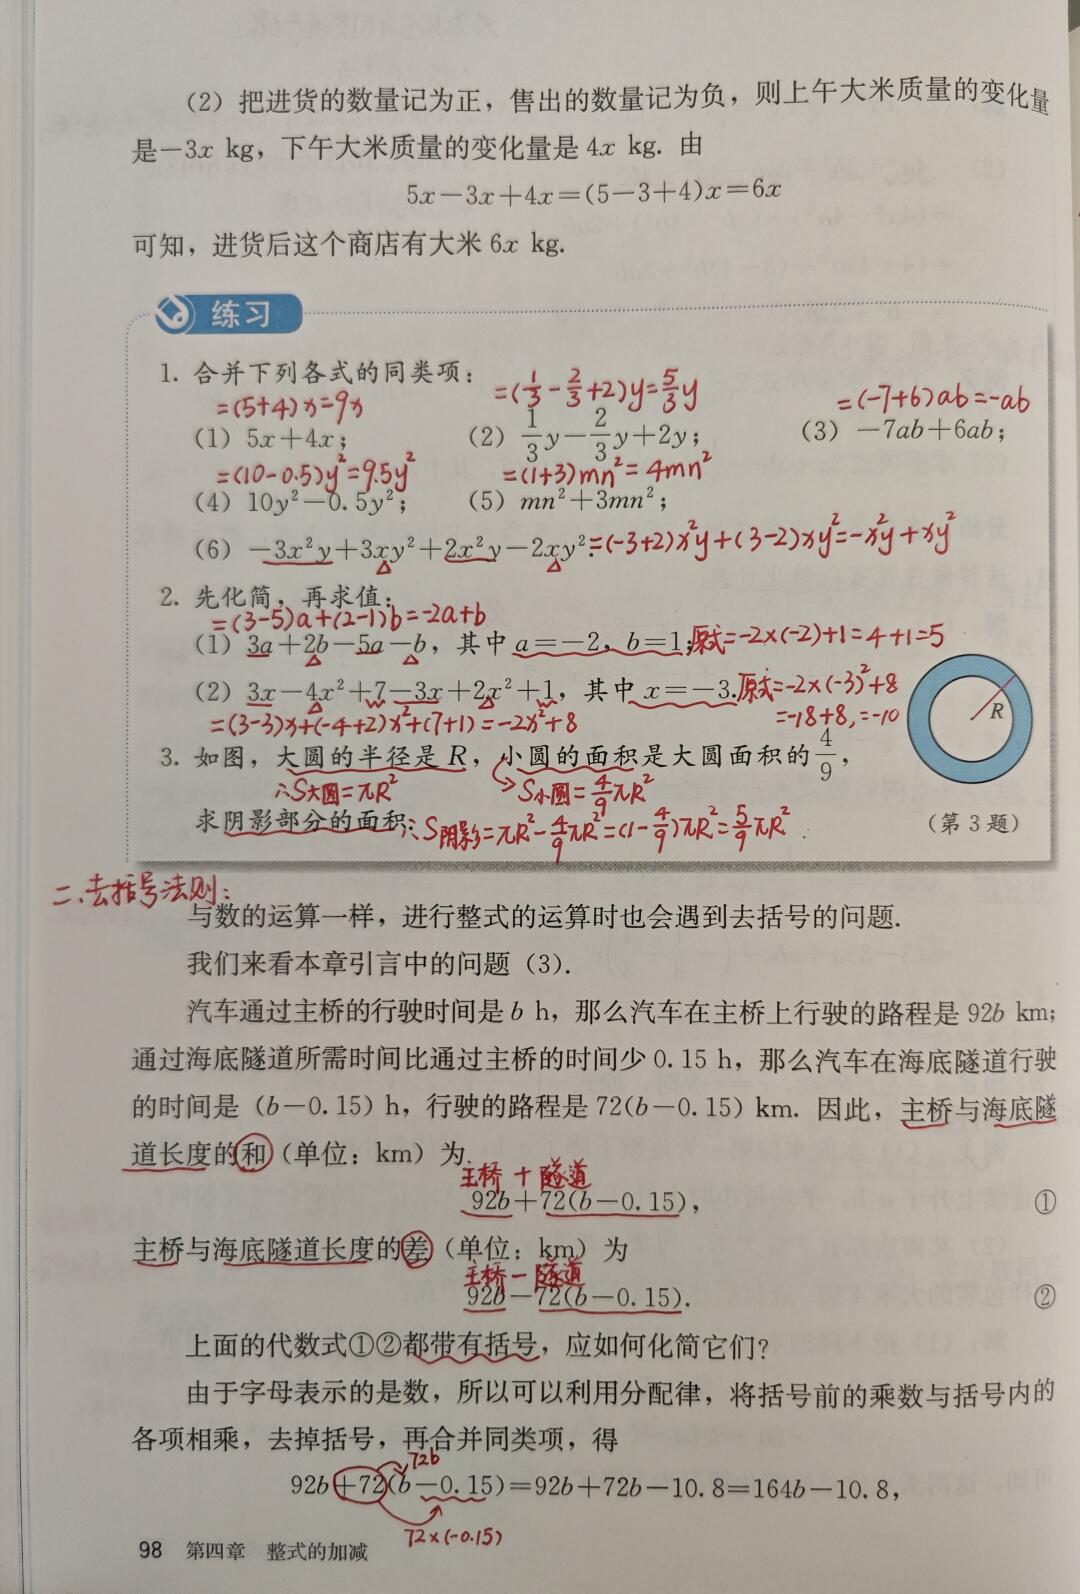 （2）把进货的数量记为正，售出的数量记为负，则上午大米质量的变化量
是−3x kg，下午大米质量的变化量是 4x kg. 由
5x−3x+4x=(5−3+4)x=6x
可知，进货后这个商店有大米 6x kg.
练习
1. 合并下列各式的同类项：
=(5+4)x=9x
=(1/3−2/3+2)y=5/3y
=(-7+6)ab=-ab
（1）5x+4x；
（2）1/3y−2/3y+2y；
（3）−7ab+6ab；
=(10-0.5)y²=9.5y²
=(1+3)mn²=4mn²
（4）10y²−0.5y²；
（5）mn²+3mn²；
（6）−3x²y+3xy²+2x²y−2xy². =(-3+2)x²y+(3-2)xy²=-x²y+xy²
2. 先化简，再求值：
=(3-5)a+(2-1)b=-2a+b
（1）3a+2b−5a−b，其中 a=−2，b=1；原式=-2×(-2)+1=4+1=5
（2）3x−4x²+7−3x+2x²+1，其中 x=−3. 原式=-2×(-3)²+8
=(3-3)x+(-4+2)x²+(7+1)=-2x²+8
=-18+8,=-10
R
3. 如图，大圆的半径是 R，小圆的面积是大圆面积的 4/9，
∴S大圆=πR²
S小圆=4/9πR²
求阴影部分的面积. ∴S阴影=πR²-4/9πR²=(1-4/9)πR²=5/9πR²
（第 3 题）
二、去括号法则：
与数的运算一样，进行整式的运算时也会遇到去括号的问题.
我们来看本章引言中的问题（3）.
汽车通过主桥的行驶时间是 b h，那么汽车在主桥上行驶的路程是 92b km；
通过海底隧道所需时间比通过主桥的时间少 0.15 h，那么汽车在海底隧道行驶
的时间是（b−0.15）h，行驶的路程是 72(b−0.15) km. 因此，主桥与海底隧
道长度的和（单位：km）为
主桥 + 隧道
92b+72(b−0.15)， ①
主桥与海底隧道长度的差（单位：km）为
主桥 − 隧道
92b−72(b−0.15). ②
上面的代数式①②都带有括号，应如何化简它们？
由于字母表示的是数，所以可以利用分配律，将括号前的乘数与括号内的
各项相乘，去掉括号，再合并同类项，得
72b
92b+72(b−0.15)=92b+72b−10.8=164b−10.8，
72×(-0.15)
98 第四章 整式的加减